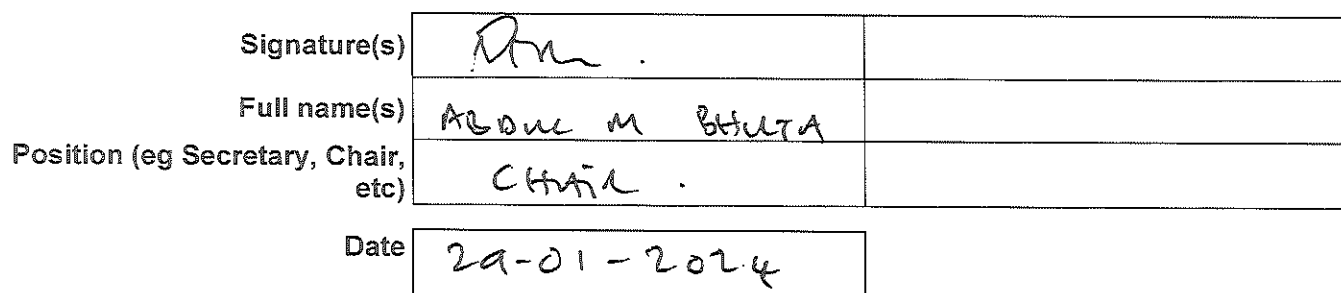 Signature(s)
Full name(s) ABDUL M BHUTA
Position (eg Secretary, Chair,
etc) CHAIR .
Date 29-01-2024